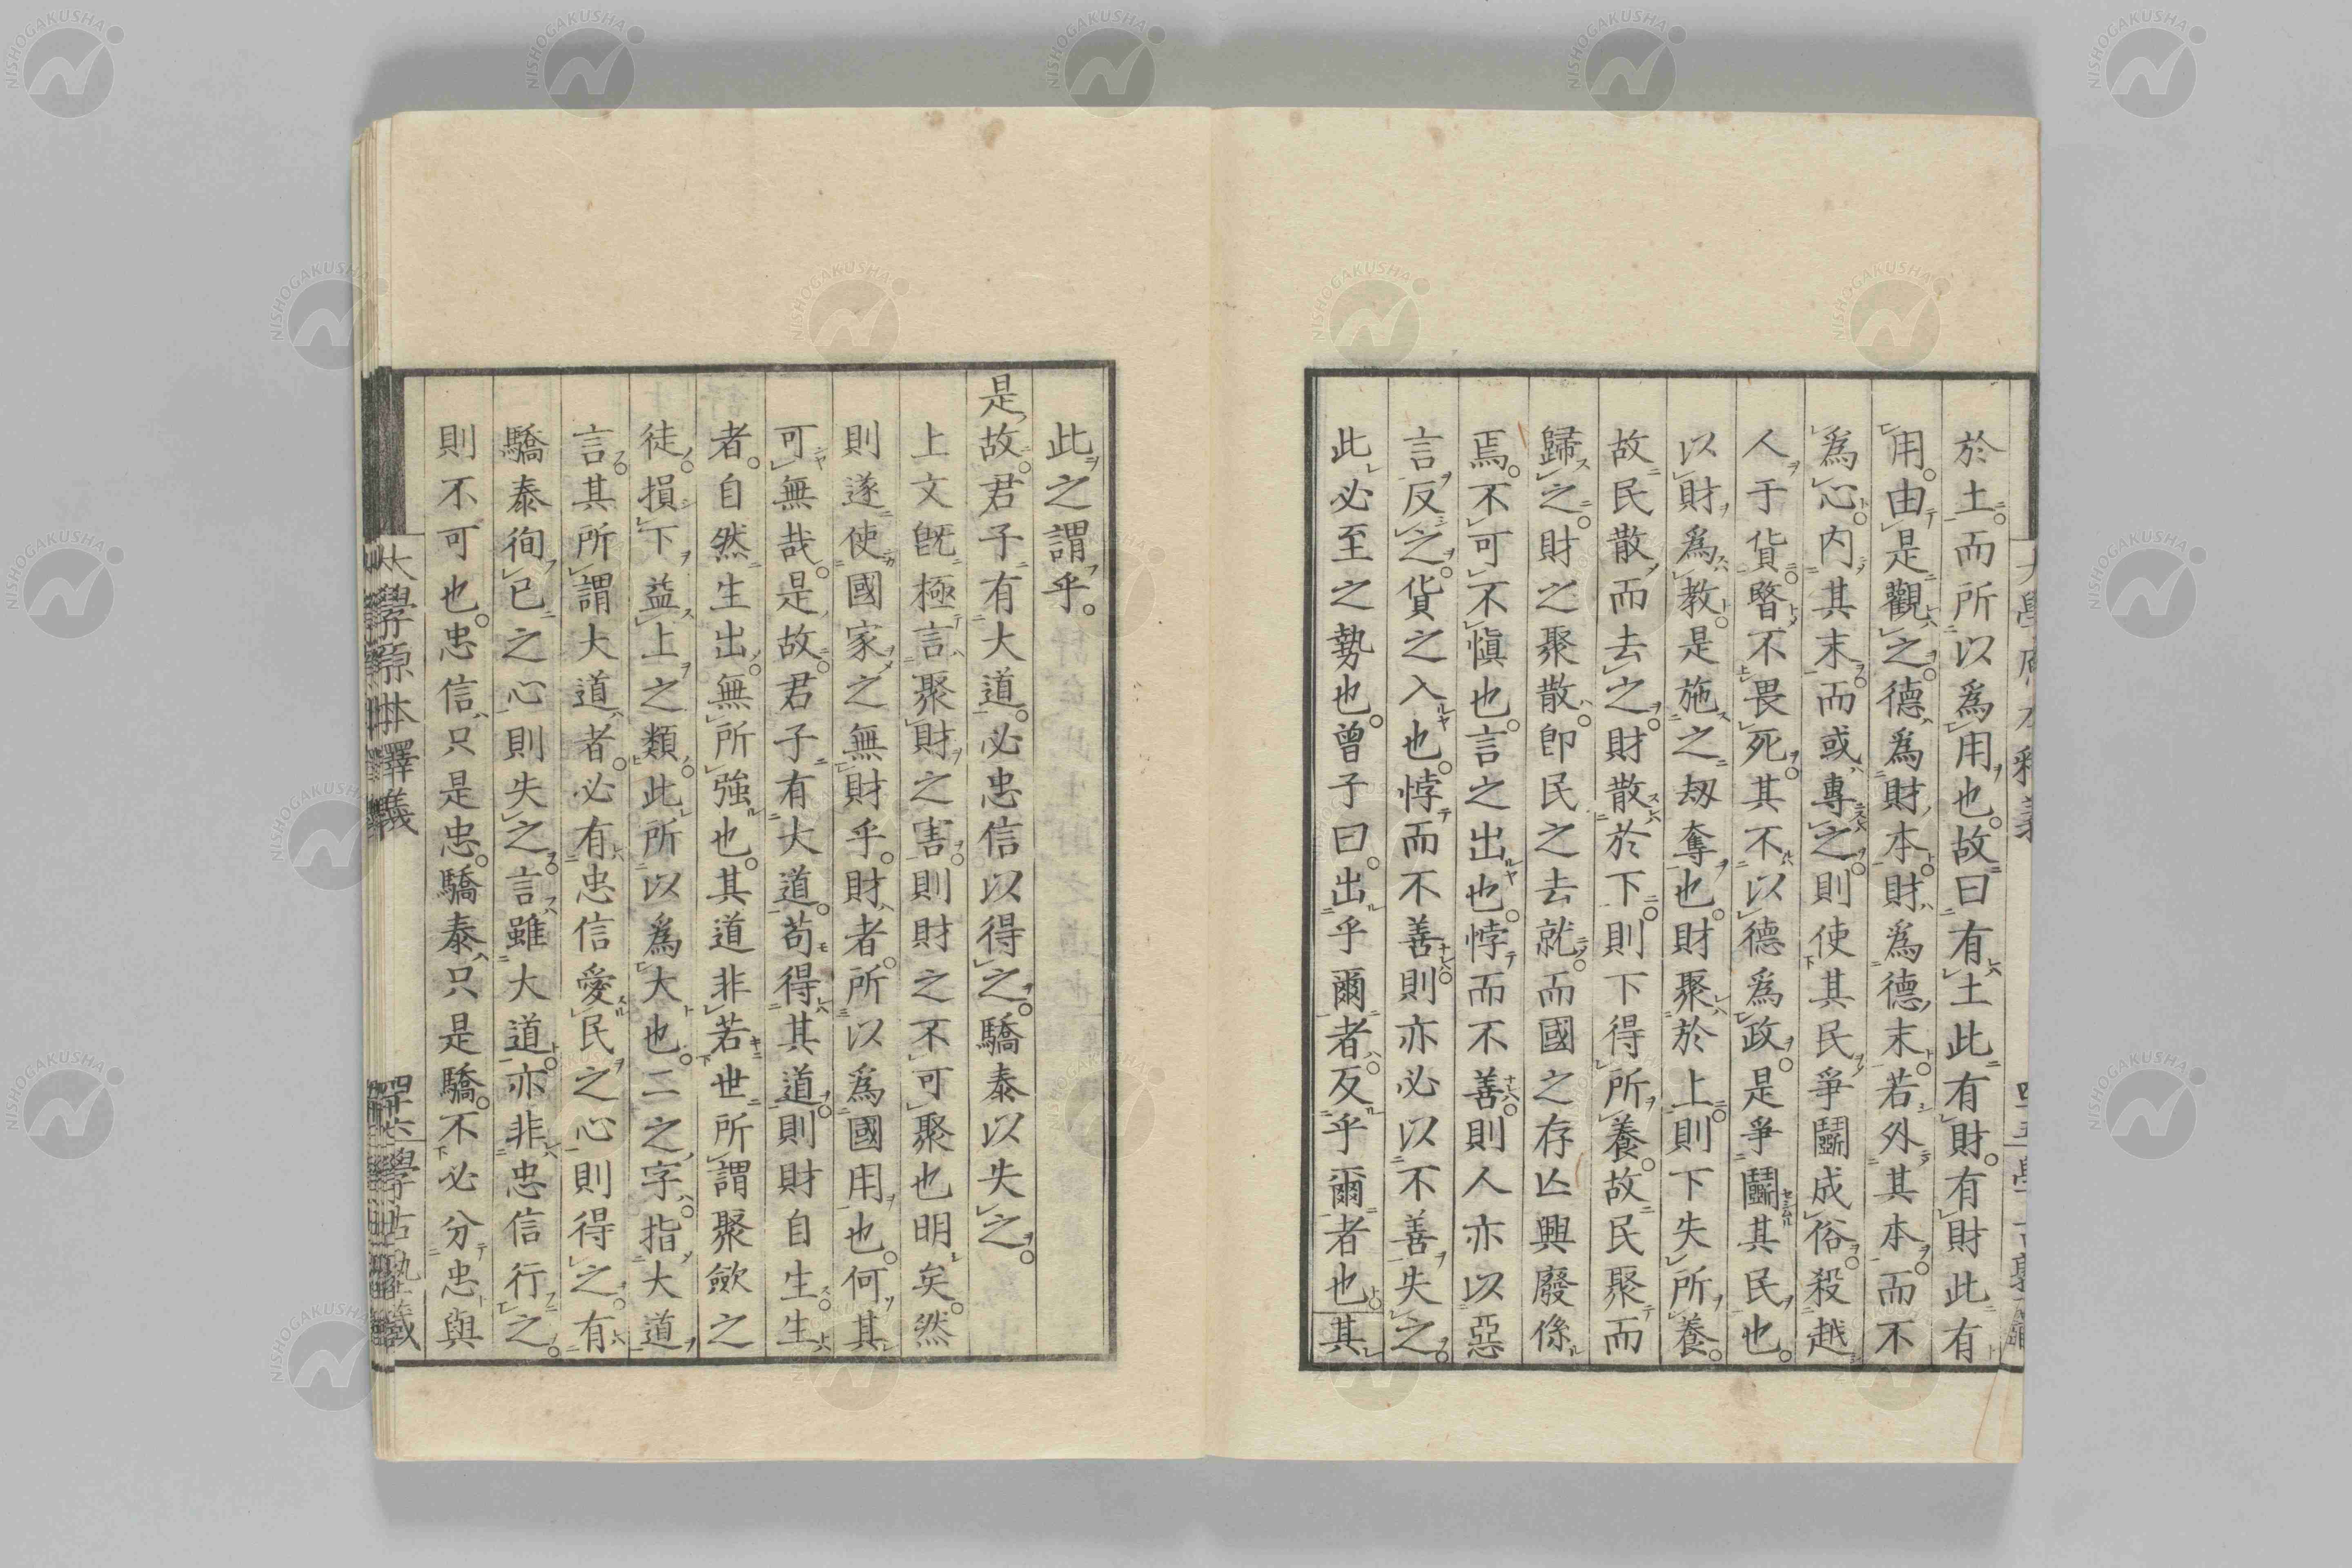 於土而所以爲用也。故曰有土此有財。有財此有
用。由是觀之。德爲財本。財爲德末。若外其本。而不
爲心。内其末。而或專之。則使其民爭鬭成俗。殺越
人于貨。暋不畏死。其不以德爲政。是爭鬭其民也。
以財爲教。是施之刼奪也。財聚於上。則下失所養。
故民散而去之。財散於下。則下得所養。故民聚而
歸之。財之聚散。卽民之去就。而國之存亾興廢係
焉。不可不愼也。言之出也。悖而不善。則人亦以惡
言反之。貨之入也。悖而不善。則亦必以不善失之。
此必至之勢也。曾子曰。出乎爾者。反乎爾者也。其
此之謂乎。
是故。君子有大道。必忠信以得之。驕泰以失之。
上文旣極言聚財之害。則財之不可聚也明矣。然
則遂使國家之無財乎。財者。所以爲國用也。何其
可無哉。是故。君子有大道。苟得其道。則財自生。生
者。自然生出。無所強也。其道非若世所謂聚斂之
徒。損下益上之類。此所以爲大也。二之字。指大道
言。其所謂大道者。必有忠信愛民之心則得之。有
驕泰徇己之心則失之。言雖大道。亦非忠信行之。
則不可也。忠信只是忠。驕泰只是驕。不必分忠與
大學原本釋義
四十六